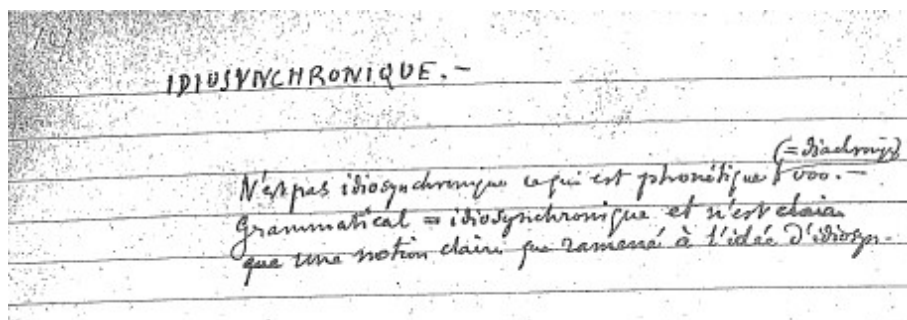 IDIOSYNCHRONIQUE. —
(= diachroniq)
N'est pas idiosynchronique ce qui est phonétique ооо. —
Grammatical = idiosynchronique et n'est
que une notion claire que ramené à l'idée d'idiosyn-